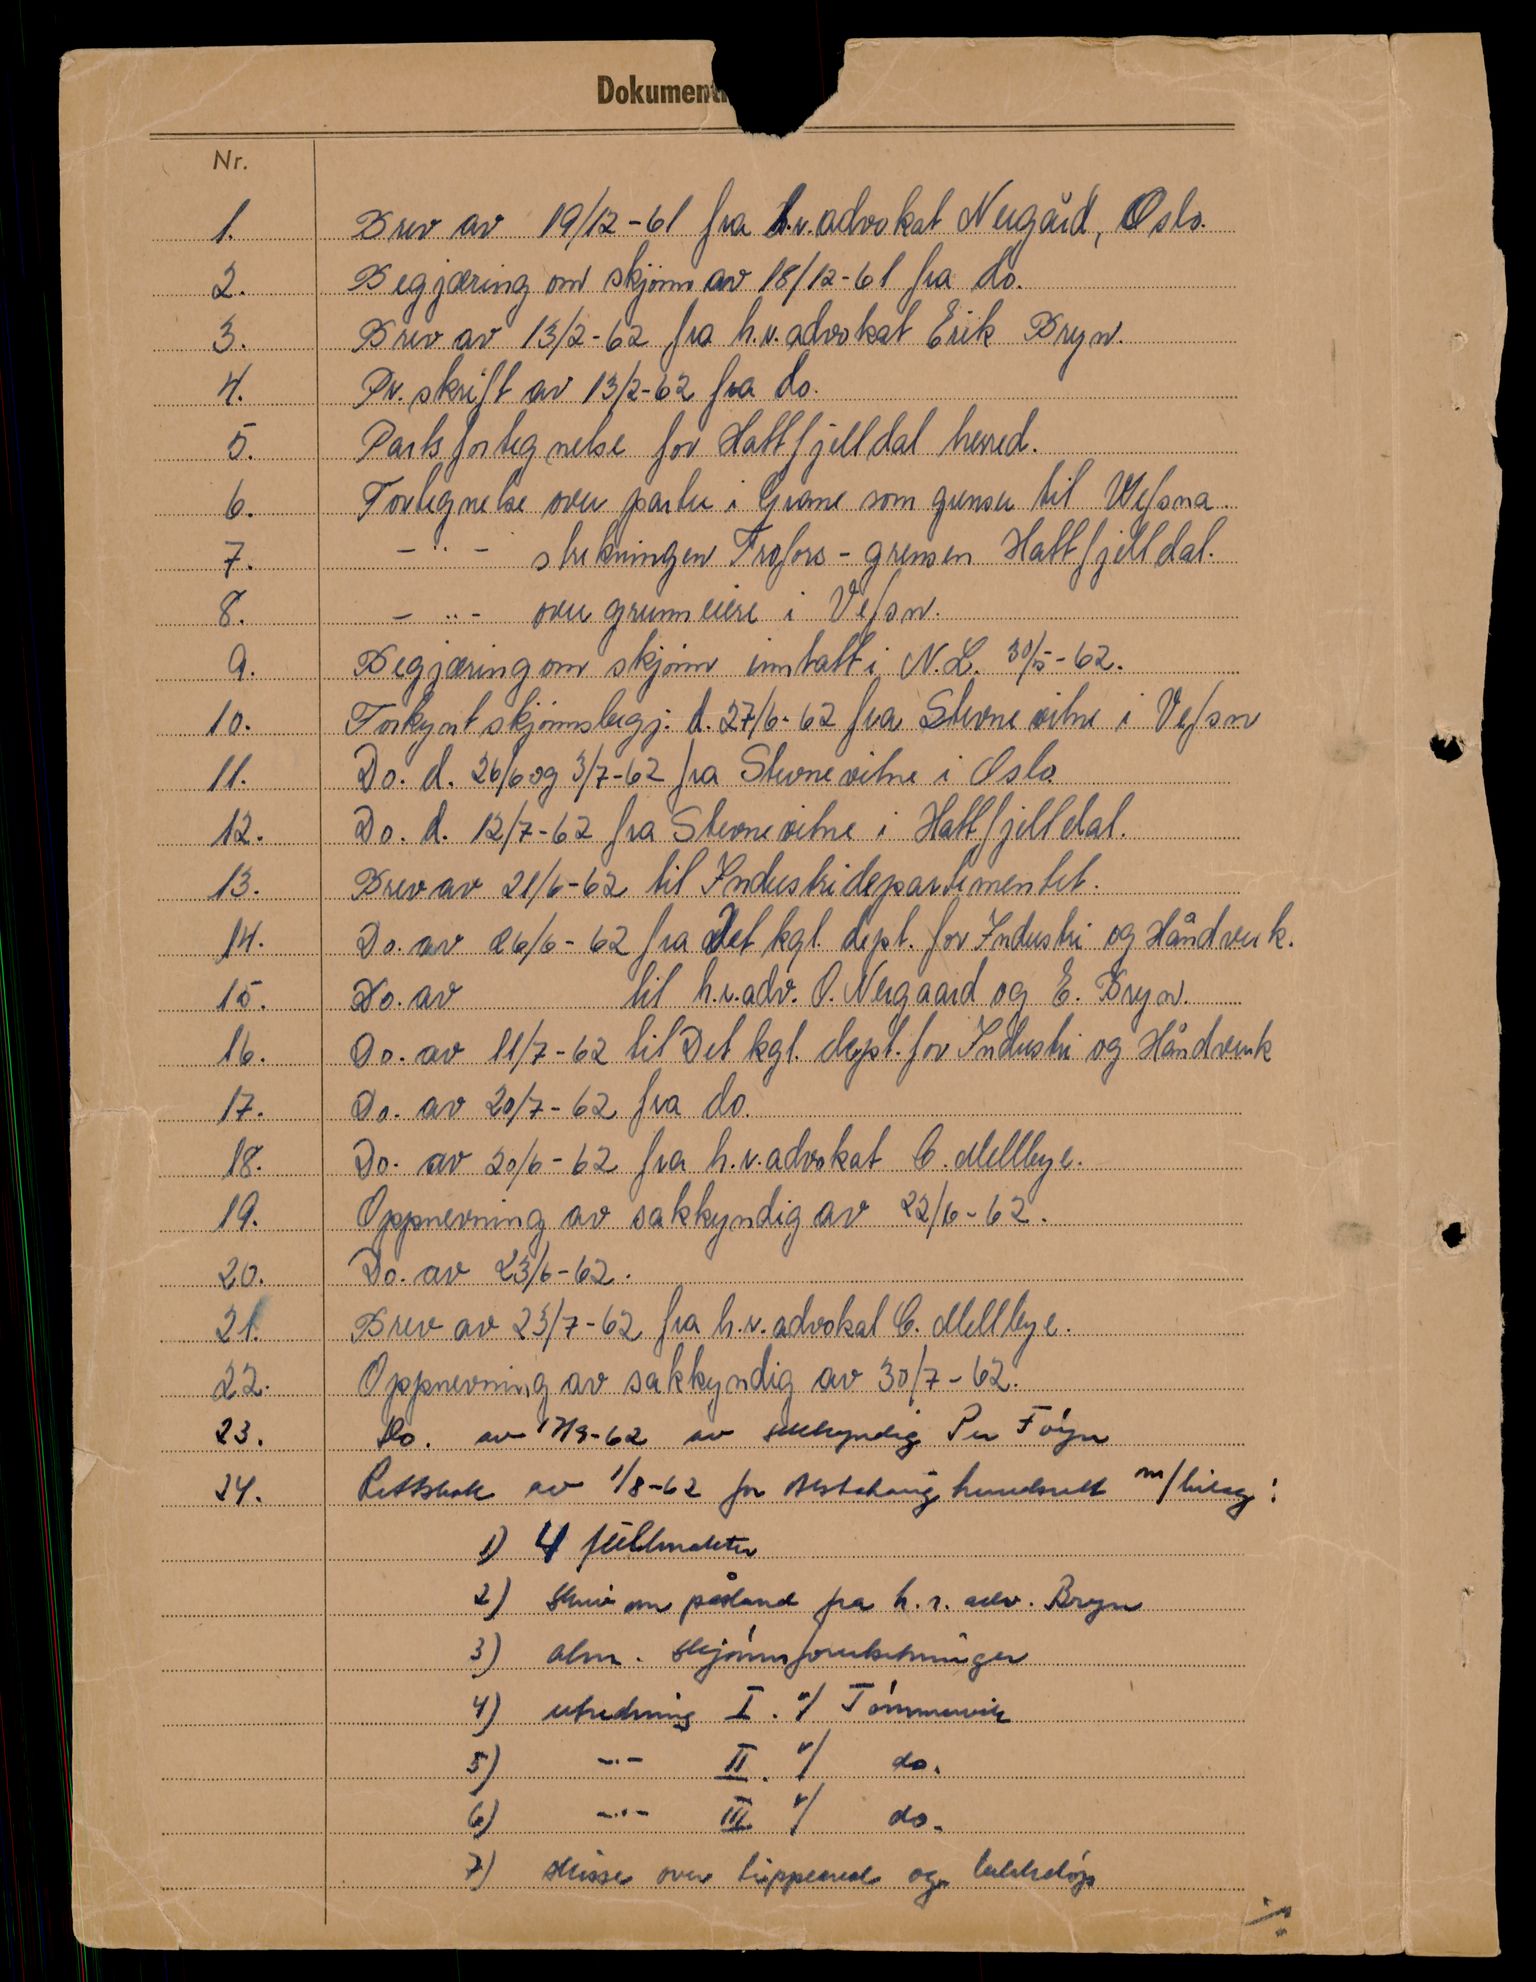 Dokument
Nr.
1. Brev av 19/12-61 fra h.r.advokat Nergård, Oslo.
2. Begjæring om skjønn av 18/12-61 fra do.
3. Brev av 13/2-62 fra h.r.advokat Erik Bryn.
4. Pr. skrift av 13/2-62 fra do.
5. Partsfortegnelse for Hattfjelldal herred.
6. Fortegnelse over parter i Grane som grenser til Vefsna.
7. - " - strekningen Trofors - grensen Hattfjelldal.
8. - " - over grunneiere i Vefsn.
9. Begjæring om skjønn inntatt i N.L. 30/5-62.
10. Forkynt skjønnsbegj. d. 27/6-62 fra Stevnevitne i Vefsn
11. Do. d. 26/6 og 3/7-62 fra Stevnevitne i Oslo
12. Do. d. 12/7-62 fra Stevnevitne i Hattfjelldal.
13. Brev av 21/6-62 til Industridepartementet.
14. Do. av 26/6-62 fra Det kgl. dept. for Industri og Håndverk.
15. Do. av til h.r.adv. O. Nergaard og E. Bryn.
16. Do. av 11/7-62 til Det kgl. dept. for Industri og Håndverk
17. Do. av 20/7-62 fra do.
18. Do. av 20/6-62 fra h.r.advokat C. Mellbye.
19. Oppnevning av sakkyndig av 22/6-62.
20. Do. av 23/6-62.
21. Brev av 23/7-62 fra h.r.advokat C. Mellbye.
22. Oppnevning av sakkyndig av 30/7-62.
23. Do. av 17/9-62 av sakkyndig Per Føyn
24. Rettsbok av 1/8-62 for Alstahaug herredsrett m/bilag:
1) 4 fullmakter
2) Skriv om påstand fra h.r. adv. Bryn
3) alm. skjønnsforutsetninger
4) utredning I. v/ Tømmervik
5) -"- II. v/ do.
6) -"- III v/ do.
7) skisse over tippeareal og
./.